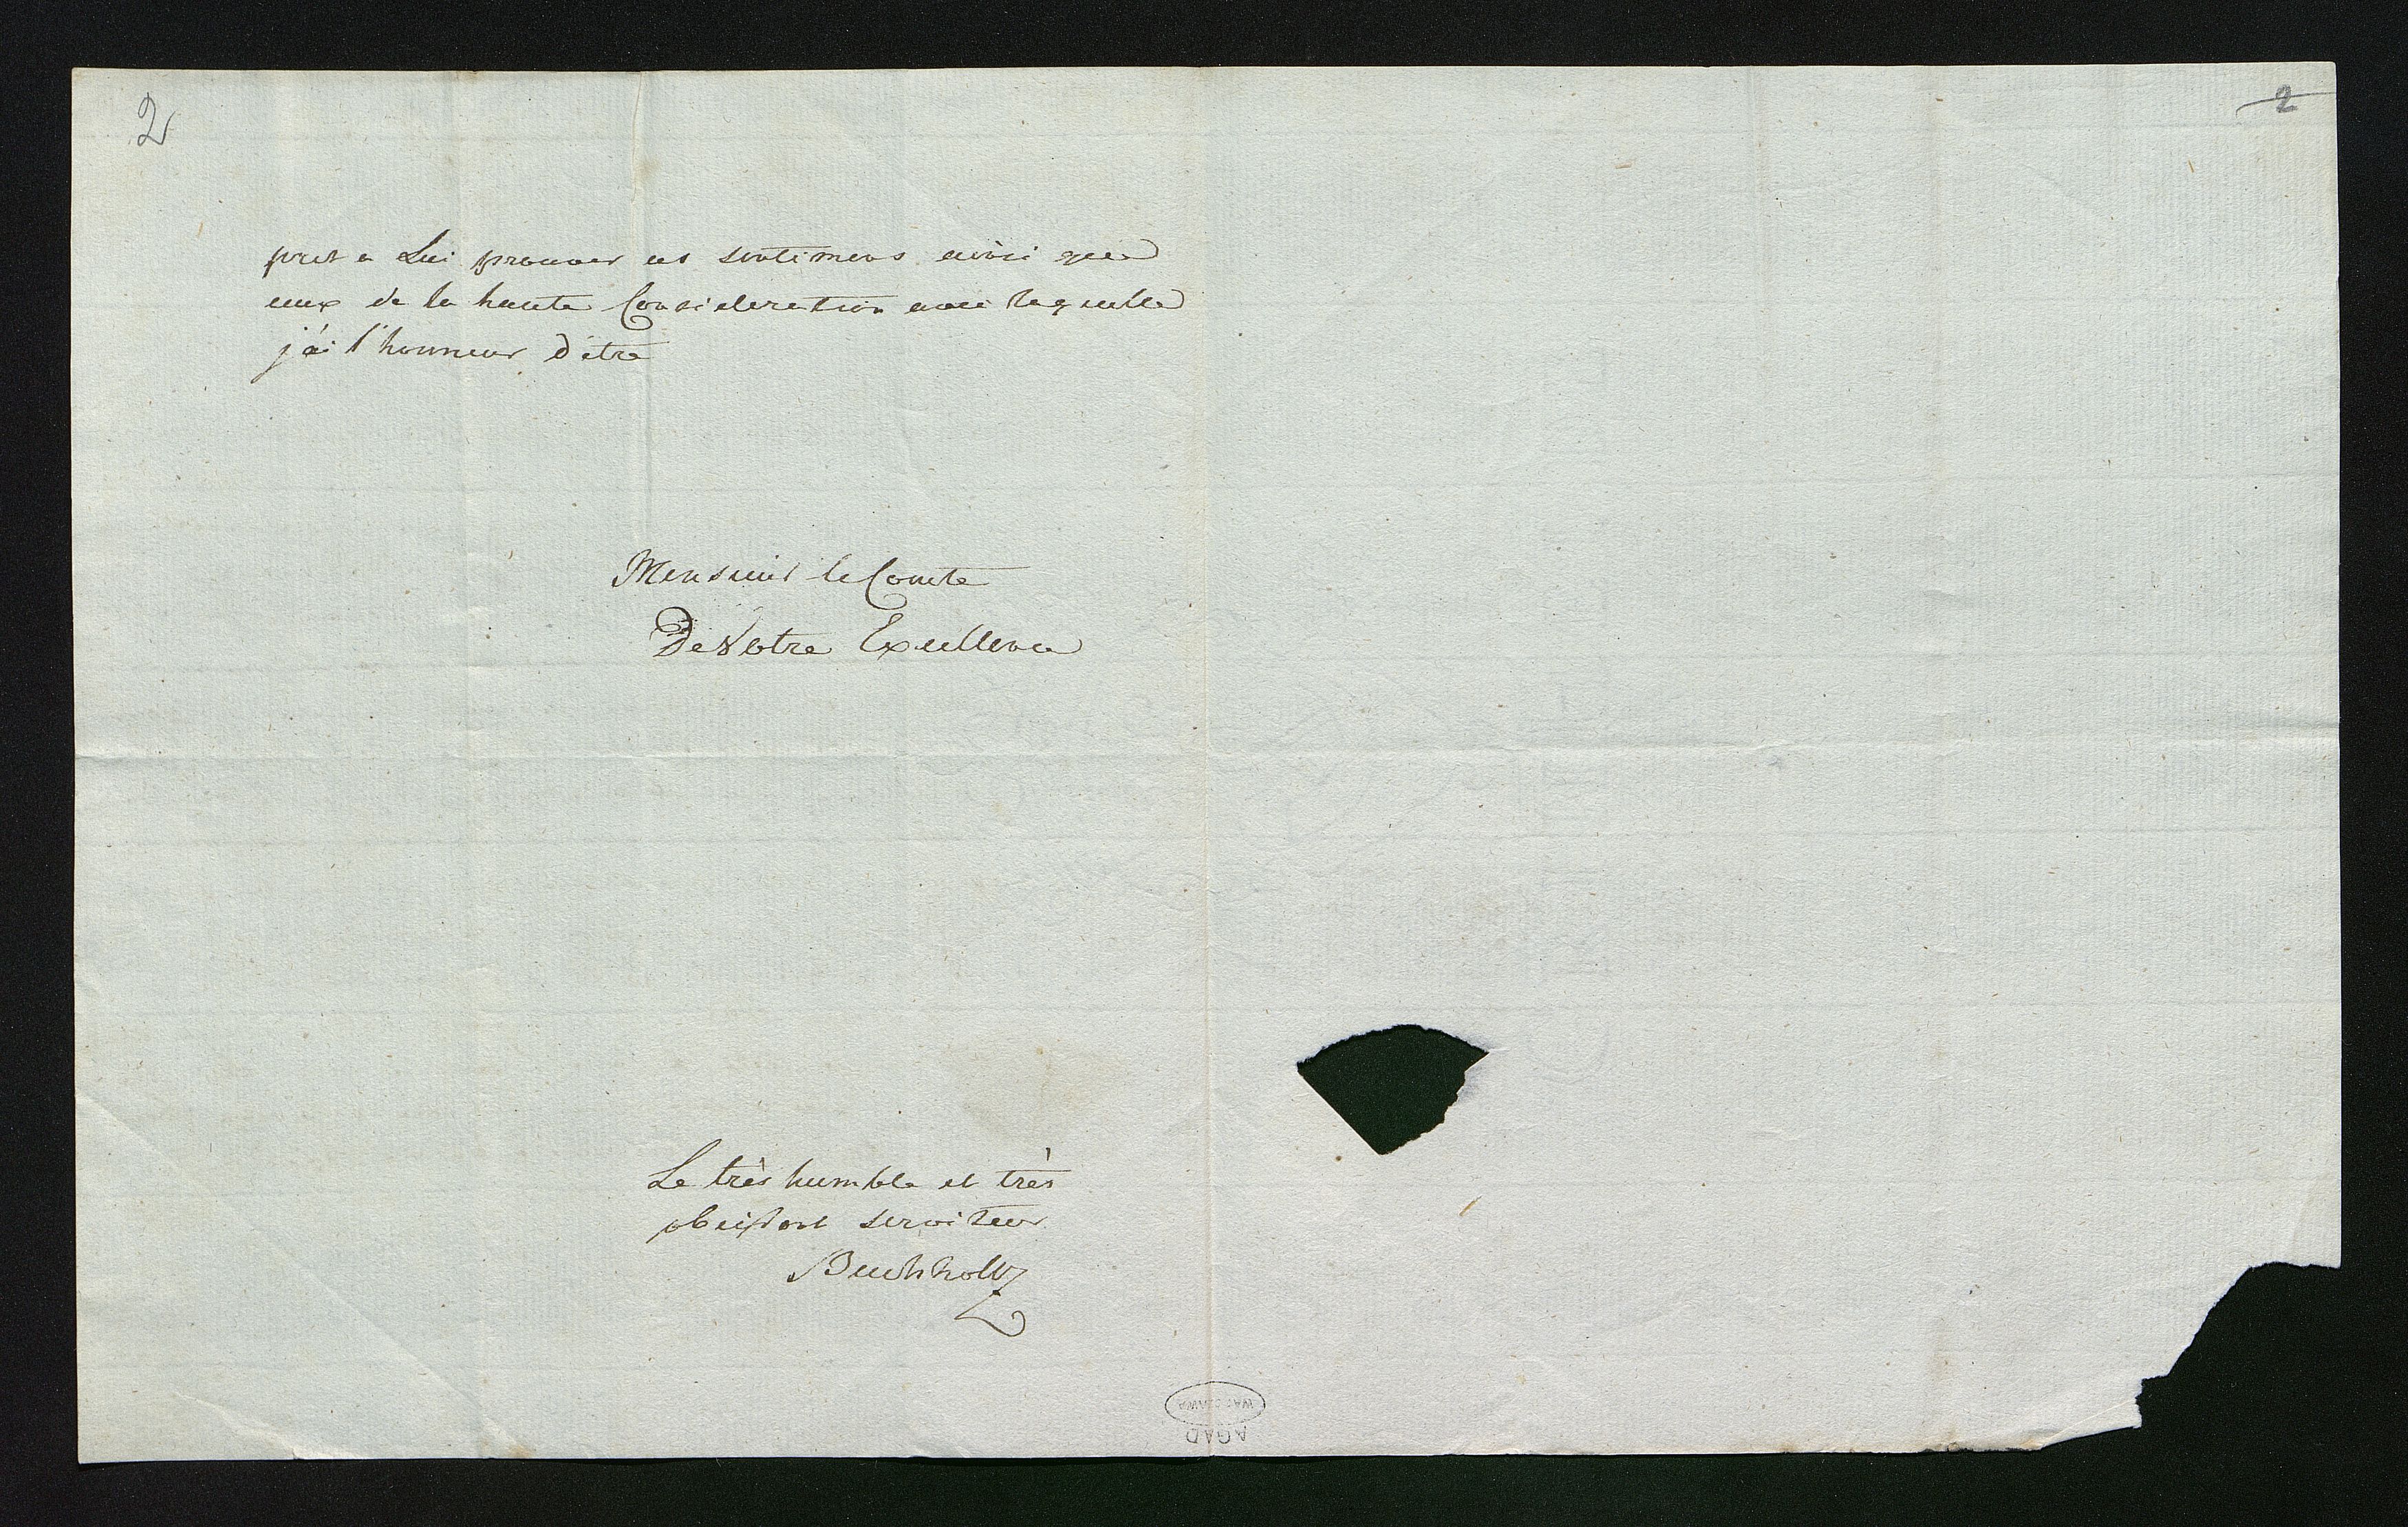 2
2
pret a Lui prouver ces sentimens ainsi que
ceux de la haute Consideration avec laquelle
j'ai l'honneur d'etre
Monsieur le Comte
De Votre Excellence
Le très humble et très
obeissant serviteur
Buchholtz
WARSZAWA
AGAD